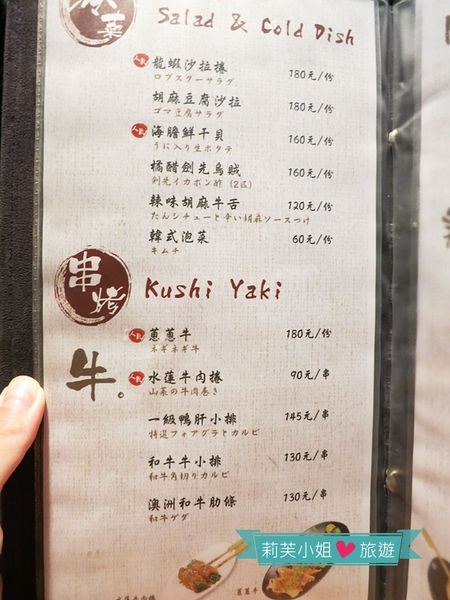 菜
Salad & Cold Dish
人氣 龍蝦沙拉捲 180元/份
ロブスターサラダ
胡麻豆腐沙拉 180元/份
ゴマ豆腐サラダ
人氣 海膽鮮干貝 160元/份
うに入り生ホタテ
橘醋劍先烏賊 160元/份
剣先イカポン酢 (2匹)
辣味胡麻牛舌 120元/份
たんシチューと辛い胡麻ソースつけ
韓式泡菜 60元/份
キムチ
串烤 Kushi Yaki
牛。
人氣 蔥蔥牛 180元/份
ネギネギ牛
人氣 水蓮牛肉捲 90元/串
山菜の牛肉巻き
一級鴨肝小排 145元/串
特選フォアグラとカルビ
和牛牛小排 130元/串
和牛角切りカルビ
澳洲和牛肋條 130元/串
和牛ゲタ
莉芙小姐 旅遊
水蓮牛肉捲
蔥蔥牛